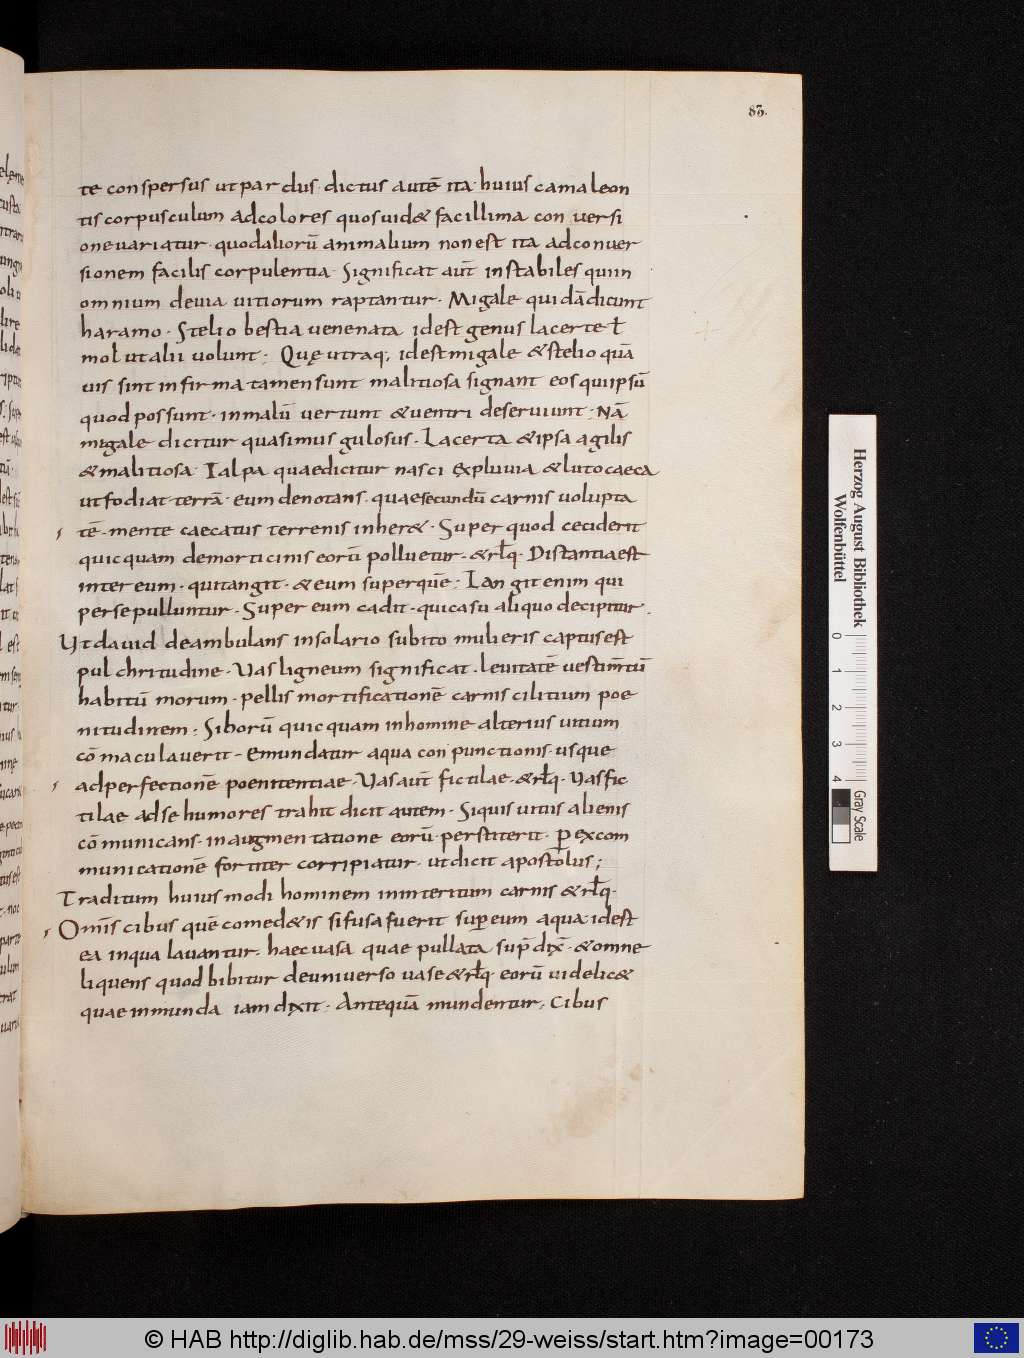 83.
te conspersus ut pardus· dictus autē ita· huius camaleon
tis corpusculum ad colores quos uid& facillima conuersi
one uariatur· quod aliorū animalium non est ita ad conuer
sionem facilis corpulentia· Significat aut̄ instabiles qui in
omnium deuia uitiorum raptantur· Migale quidā dicunt
haramo· Stelio bestia uenenata id est genus lacerte ł
mol ut alii uolunt; Quę utraq; id est migale & stelio quā
uis sint infirma tamen sunt malitiosa signant eos qui ipsū
quod possunt· in malū uertunt & uentri deseruiunt· Nā
migale dicitur quasi mus gulosus· Lacerta & ipsa agilis
& malitiosa· Talpa quae dicitur nasci ex pluuia & luto caeca
ut fodiat terrā· eum denotans· quae secundū carnis uolupta
tē· mente caecatus terrenis inher&· Super quod ceciderit
quicquam de morticinis eorū polluetur· & rl̄q· Distantia est
inter eum· qui tangit· & eum super quē; Tangit enim qui
per se polluntur· Super eum cadit· qui casu aliquo decipitur.
Ut dauid deambulans in solario subito mulieris captus est
pulchritudine· Uas ligneum significat· leuitatē uestim̄tū
habitū morum· pellis mortificationē carnis cilitium poe
nitudinem; Siborū quicquam in homine alterius uitium
cō maculauerit· Emundatur aqua conpunctionis· usque
ad perfectionē poenitentiae· Uas aut̄ fictilae & rl̄q· Uas fic
tilae ad se humores trahit dicit autem· Siquis uitiis alienis
cō municans· in augmentatione eorū· perstiterit· p̱ excom
municationē fortiter corripiatur· ut dicit apostolus;
Traditum huiusmodi hominem in interitum carnis & rl̄q·
Omīs cibus quē comed&is si fusa fuerit sup̱ eum aqua· id est
ea in qua lauantur· haec uasa quae pullata sup̄ dix̄· & omne
liquens quod bibitur de uniuerso uase & rl̄q· eorū uidelic&
quae inmunda iam dixit· Antequā mundentur; Cibus
Herzog August Bibliothek
Wolfenbüttel
0 1 2 3 4
Gray Scale
© HAB http://diglib.hab.de/mss/29-weiss/start.htm?image=00173